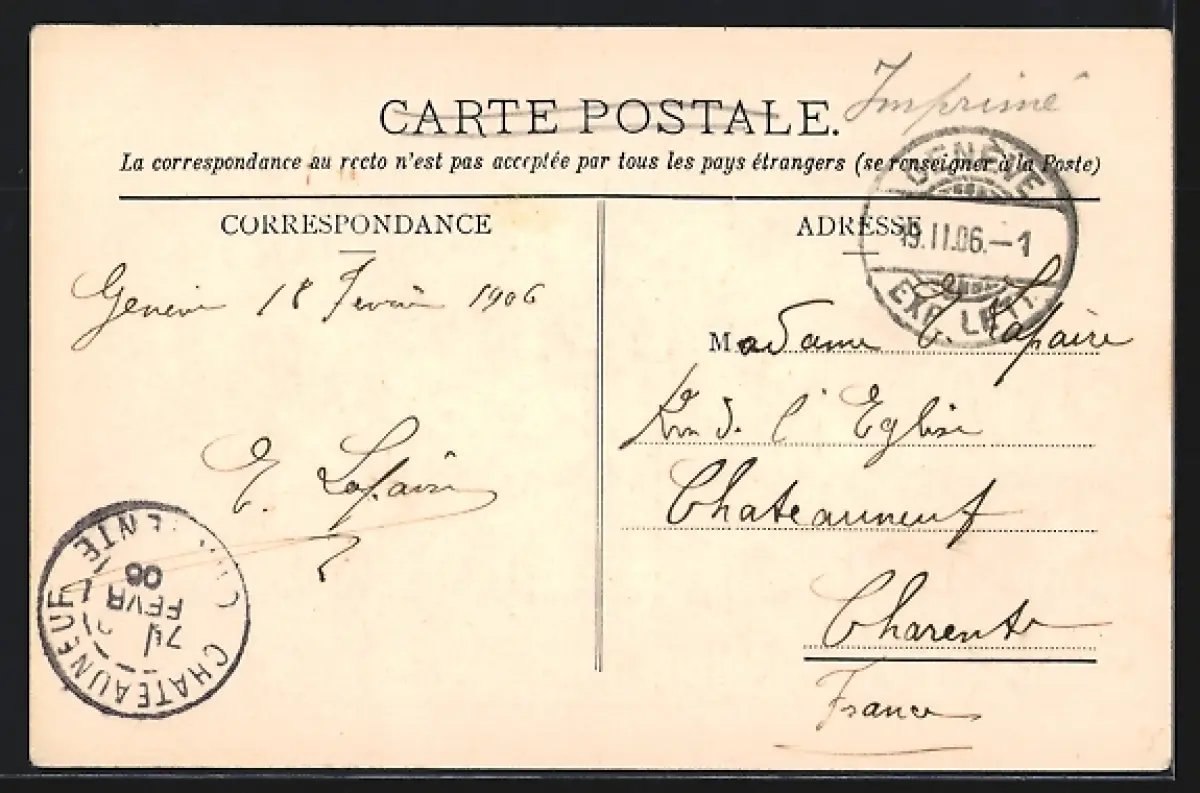 Imprimé
CARTE POSTALE.
La correspondance au recto n'est pas acceptée par tous les pays étrangers (se renseigner à la Poste)
CORRESPONDANCE
Genève 18 Fevrier 1906
E. Lapaire
CHATEAUNEUF
FEVR
06
ADRESSE
GENÈVE
19.II.06.–1
EXP. LETT.
Madame E. Lapaire
Rue de l'Eglise
Chateauneuf
Charente
France